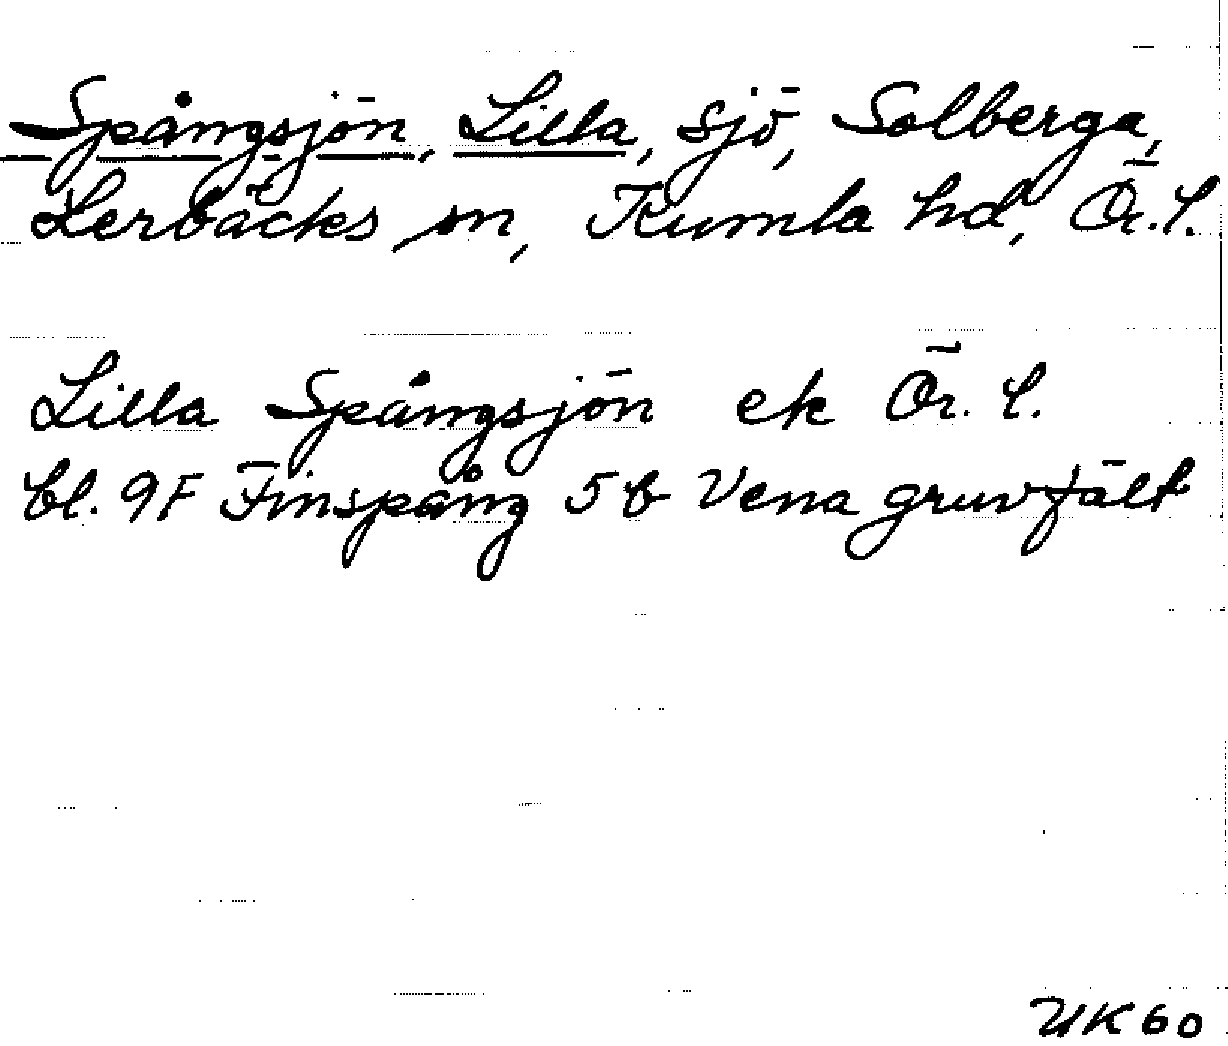 Spångsjön, Lilla, sjö, Solberga,
Lerbäcks sn, Kumla hd, Ör.l.
Lilla Spångsjön ek Ör. l.
bl. 9F Finspång 5b Vena gruvfält
UK60